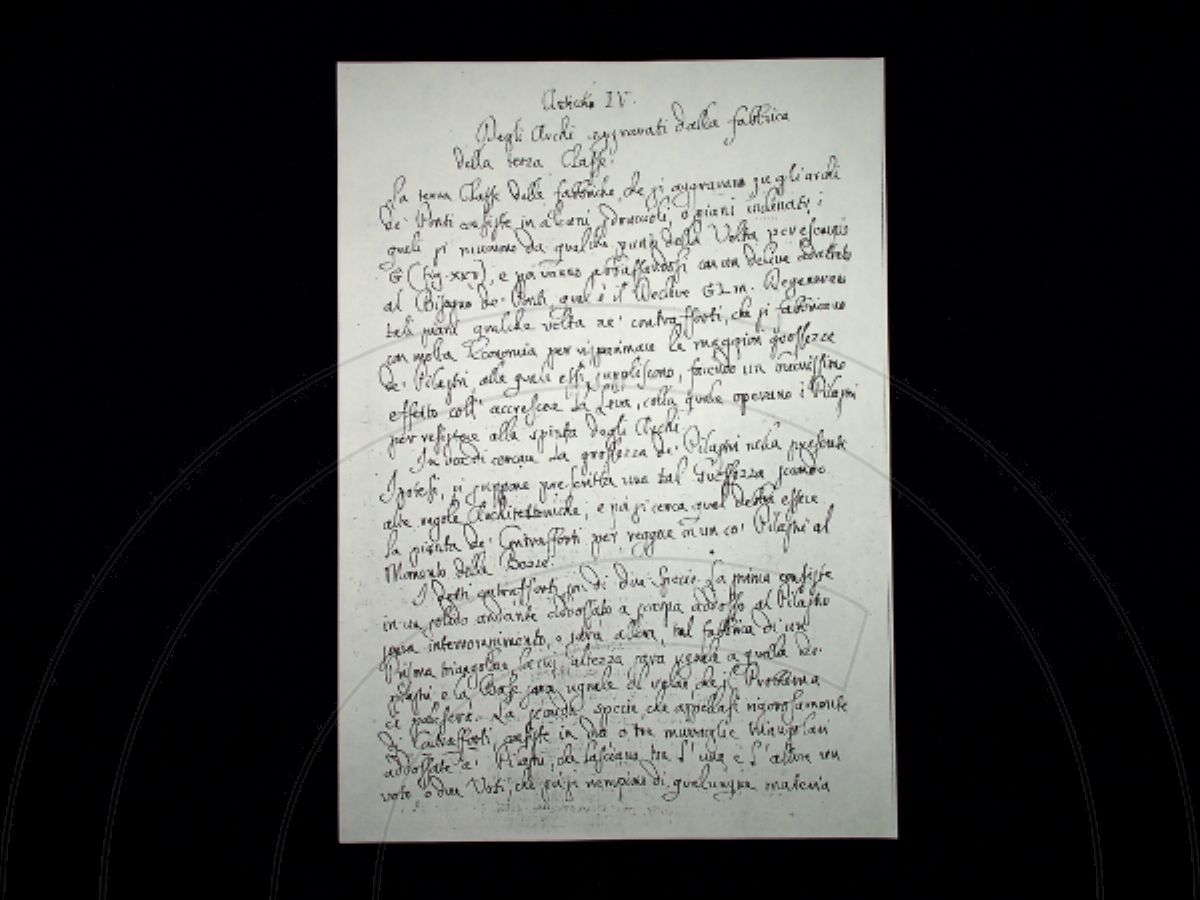 Articolo IV.
Degli Archi aggravati dalla fabbrica
della terza Classe.
La terza Classe delle fabbriche, che si aggravano su gli archi
de' Ponti consiste in alcuni sdruccioli, o piani inclinati, i
quali si muovono da qualche punto della Volta per esempio
G (fig. XXV), e poi vanno abbassandosi con un declive adattato
al Bisogno de' Ponti, qual è il Declive GLm. Degenerano
tali piani qualche volta ne' contrafforti, che si fabbricano
con molta Economia per risparmiare la maggior grossezza
de' Pilastri, alla quale essi suppliscono, facendo un buonissimo
effetto coll' accrescere la Leva, colla quale operano i Pilastri
per resistere alla spinta degli Archi.
In vece di cercare la grossezza de' Pilastri nella presente
Ipotesi, si suppone prescritta una tal Grossezza secondo
altre regole Architettoniche, e poi si cerca qual debba essere
la pianta de' Contrafforti per reggere in un co' Pilastri al
Momento delle Bozze.
I detti contrafforti son di due Specie. La prima consiste
in un solido andante addossato a scarpa addosso al Pilastro
senza interrompimento, e sarà allora tal fabbrica di un
Prisma triangolare, la cui altezza sarà uguale a quella de'
pilastri, e la Base sarà uguale al valore che il Problema
ci paleserà. La seconda specie, che appellasi rigorosamente
di Contrafforti, consiste in due o tre muraglie triangolari
addossate a' Pilastri, che lasciano tra l' una e l' altra un
voto o due Voti, che poi si riempiono di qualunque materia